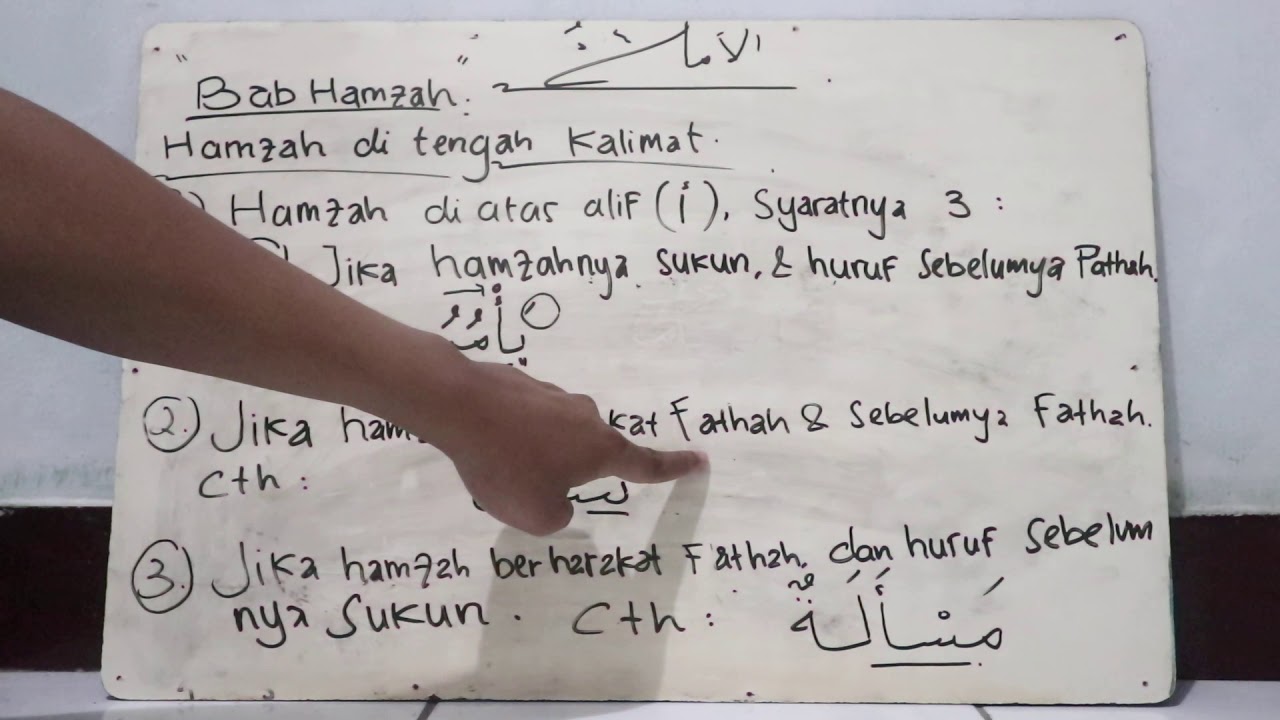 " " الإملاء
Bab Hamzah :
Hamzah di tengah Kalimat.
Hamzah di atas alif (أ), Syaratnya 3 :
Jika hamzahnya sukun, & huruf Sebelumya Pathah.
2.) Jika ham kat Fathah & Sebelumya Fathah.
Cth :
3.) Jika hamzah berharakat Fathah, dan huruf Sebelum
nya Sukun. Cth : مَسْأَلَةٌ